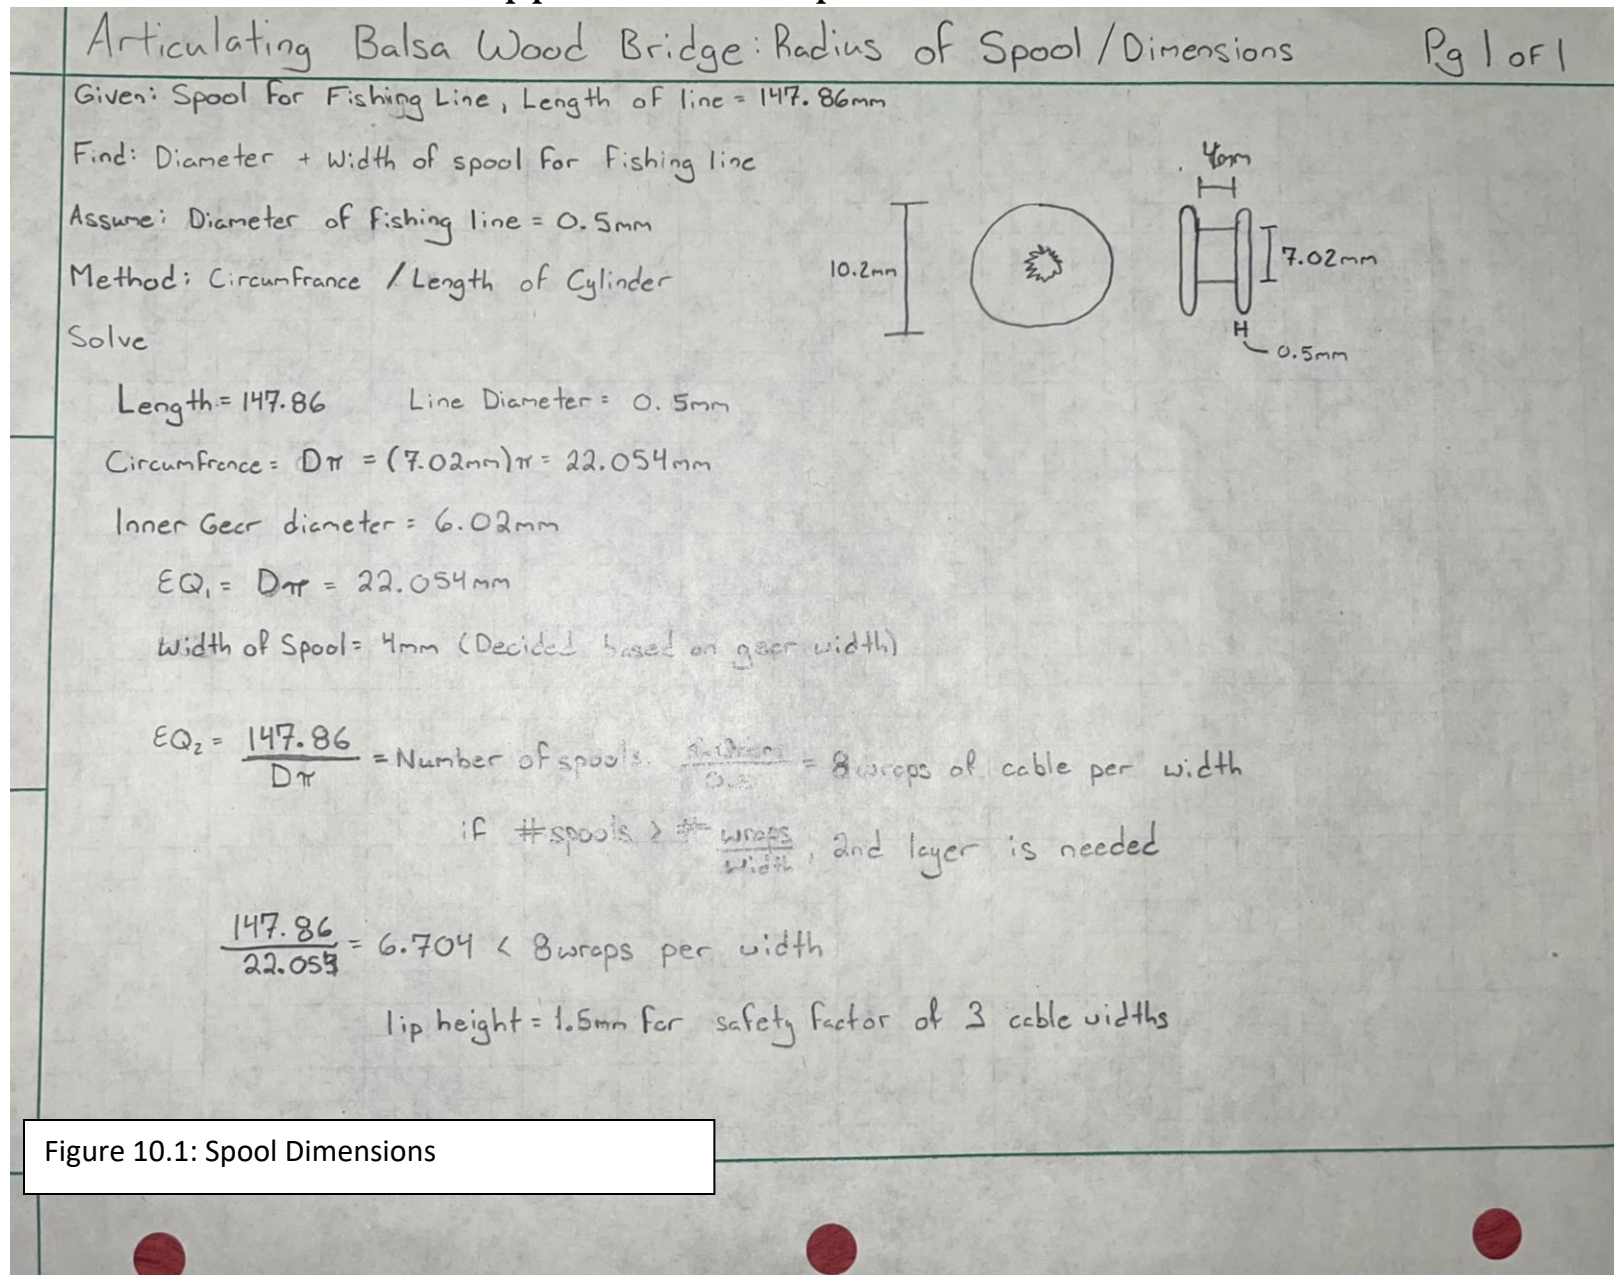 Articulating Balsa Wood Bridge: Radius of Spool / Dimensions Pg 1 of 1
Given: Spool for Fishing Line, Length of line = 147.86mm
Find: Diameter + Width of spool for fishing line
Assume: Diameter of fishing line = 0.5mm
Method: Circumfrance / Length of Cylinder
4mm
10.2mm
7.02mm
0.5mm
Solve
Length = 147.86 Line Diameter = 0.5mm
Circumfrence = Dπ = (7.02mm)π = 22.054mm
Inner Gear diameter = 6.02mm
EQ₁ = Dπ = 22.054mm
Width of Spool = 4mm (Decided based on gear width)
EQ₂ = 147.86 / Dπ = Number of spools. = 8 wraps of cable per width
if #spools > # wraps / width, 2nd layer is needed
147.86 / 22.054 = 6.704 < 8 wraps per width
lip height = 1.5mm for safety factor of 3 cable widths
Figure 10.1: Spool Dimensions